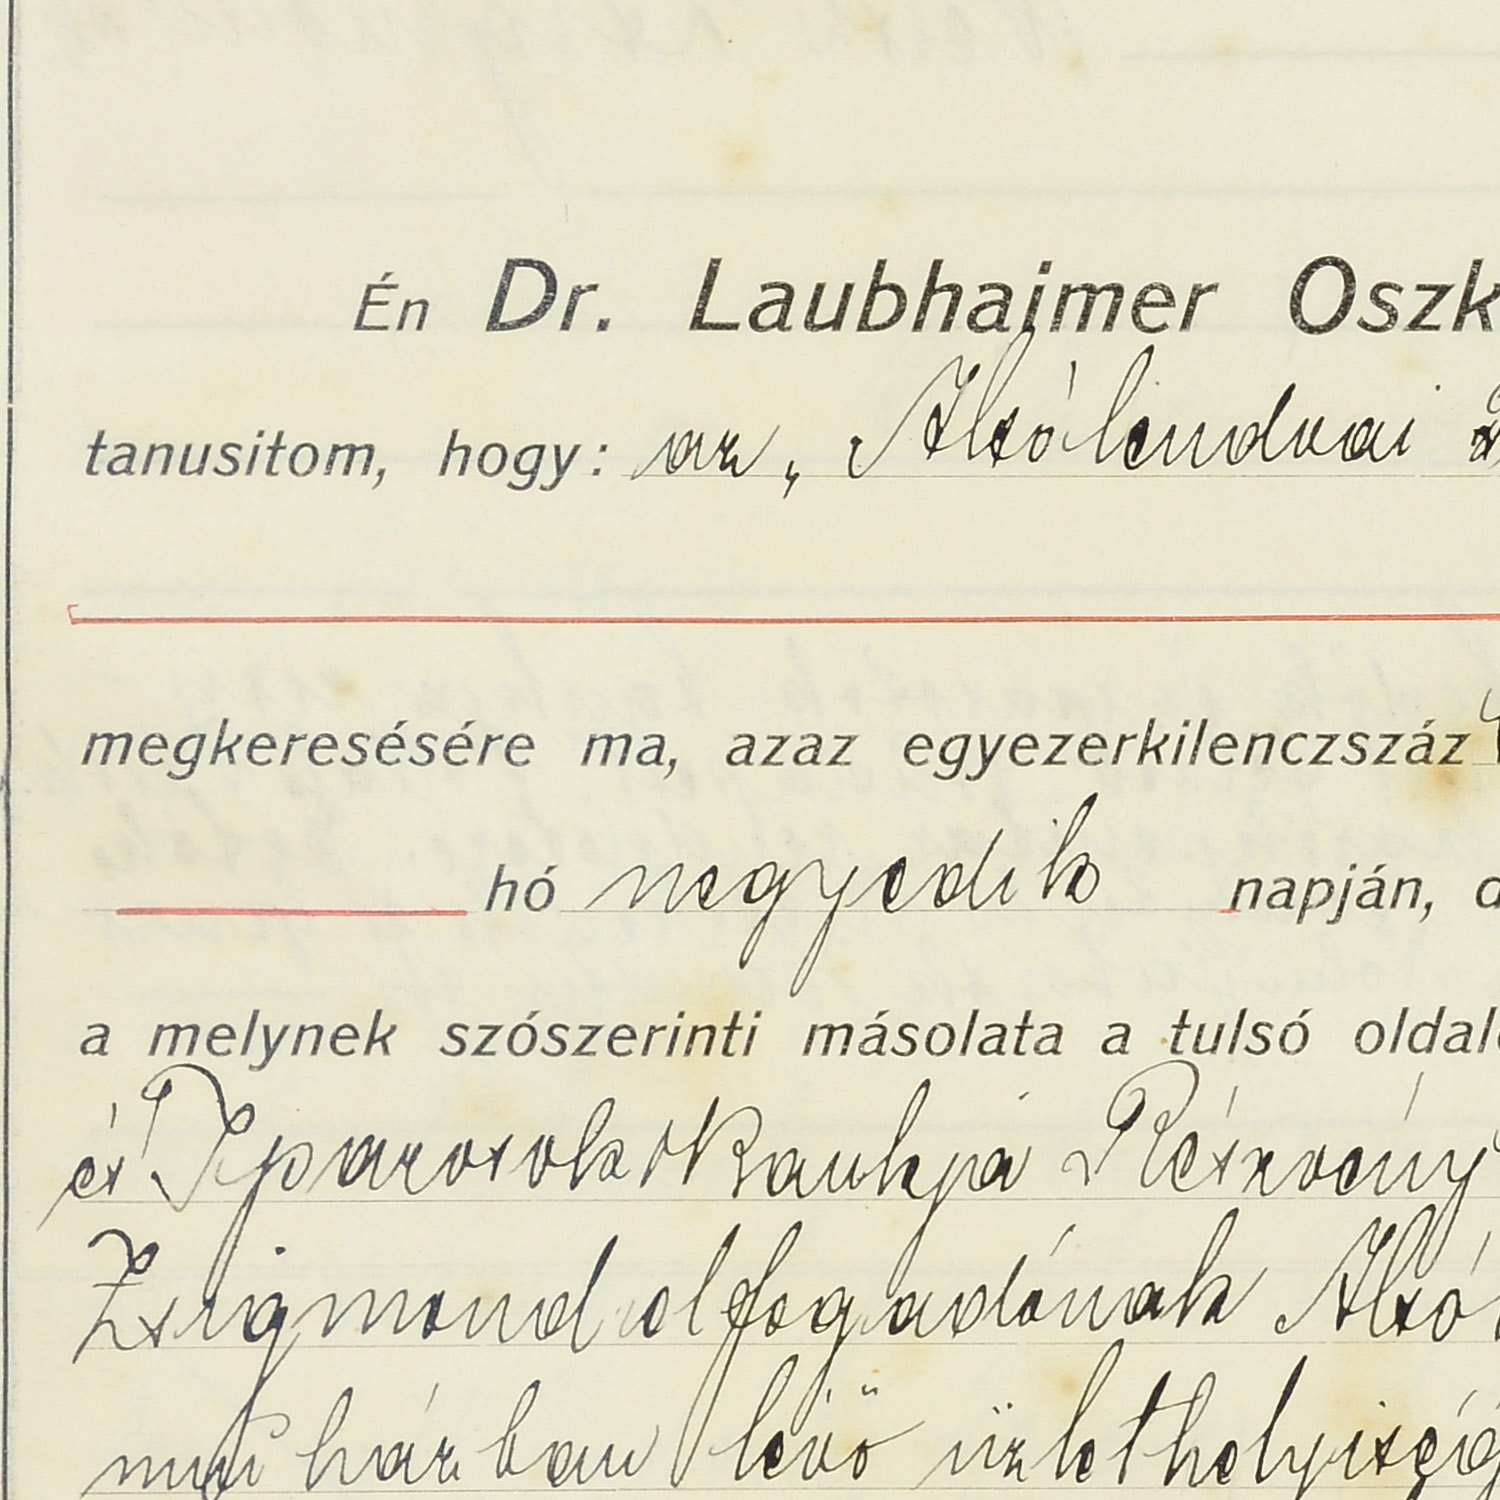 Én Dr. Laubhaimer Oszk
tanusitom, hogy: az „Alsólendvai
megkeresésére ma, azaz egyezerkilenczszáz
hó negyedik napján, d
a melynek szószerinti másolata a tulsó oldal
és Iparosok Bankja Részvény
Zsigmond elfogadónak Alsó
házban lévő üzlethelyiség